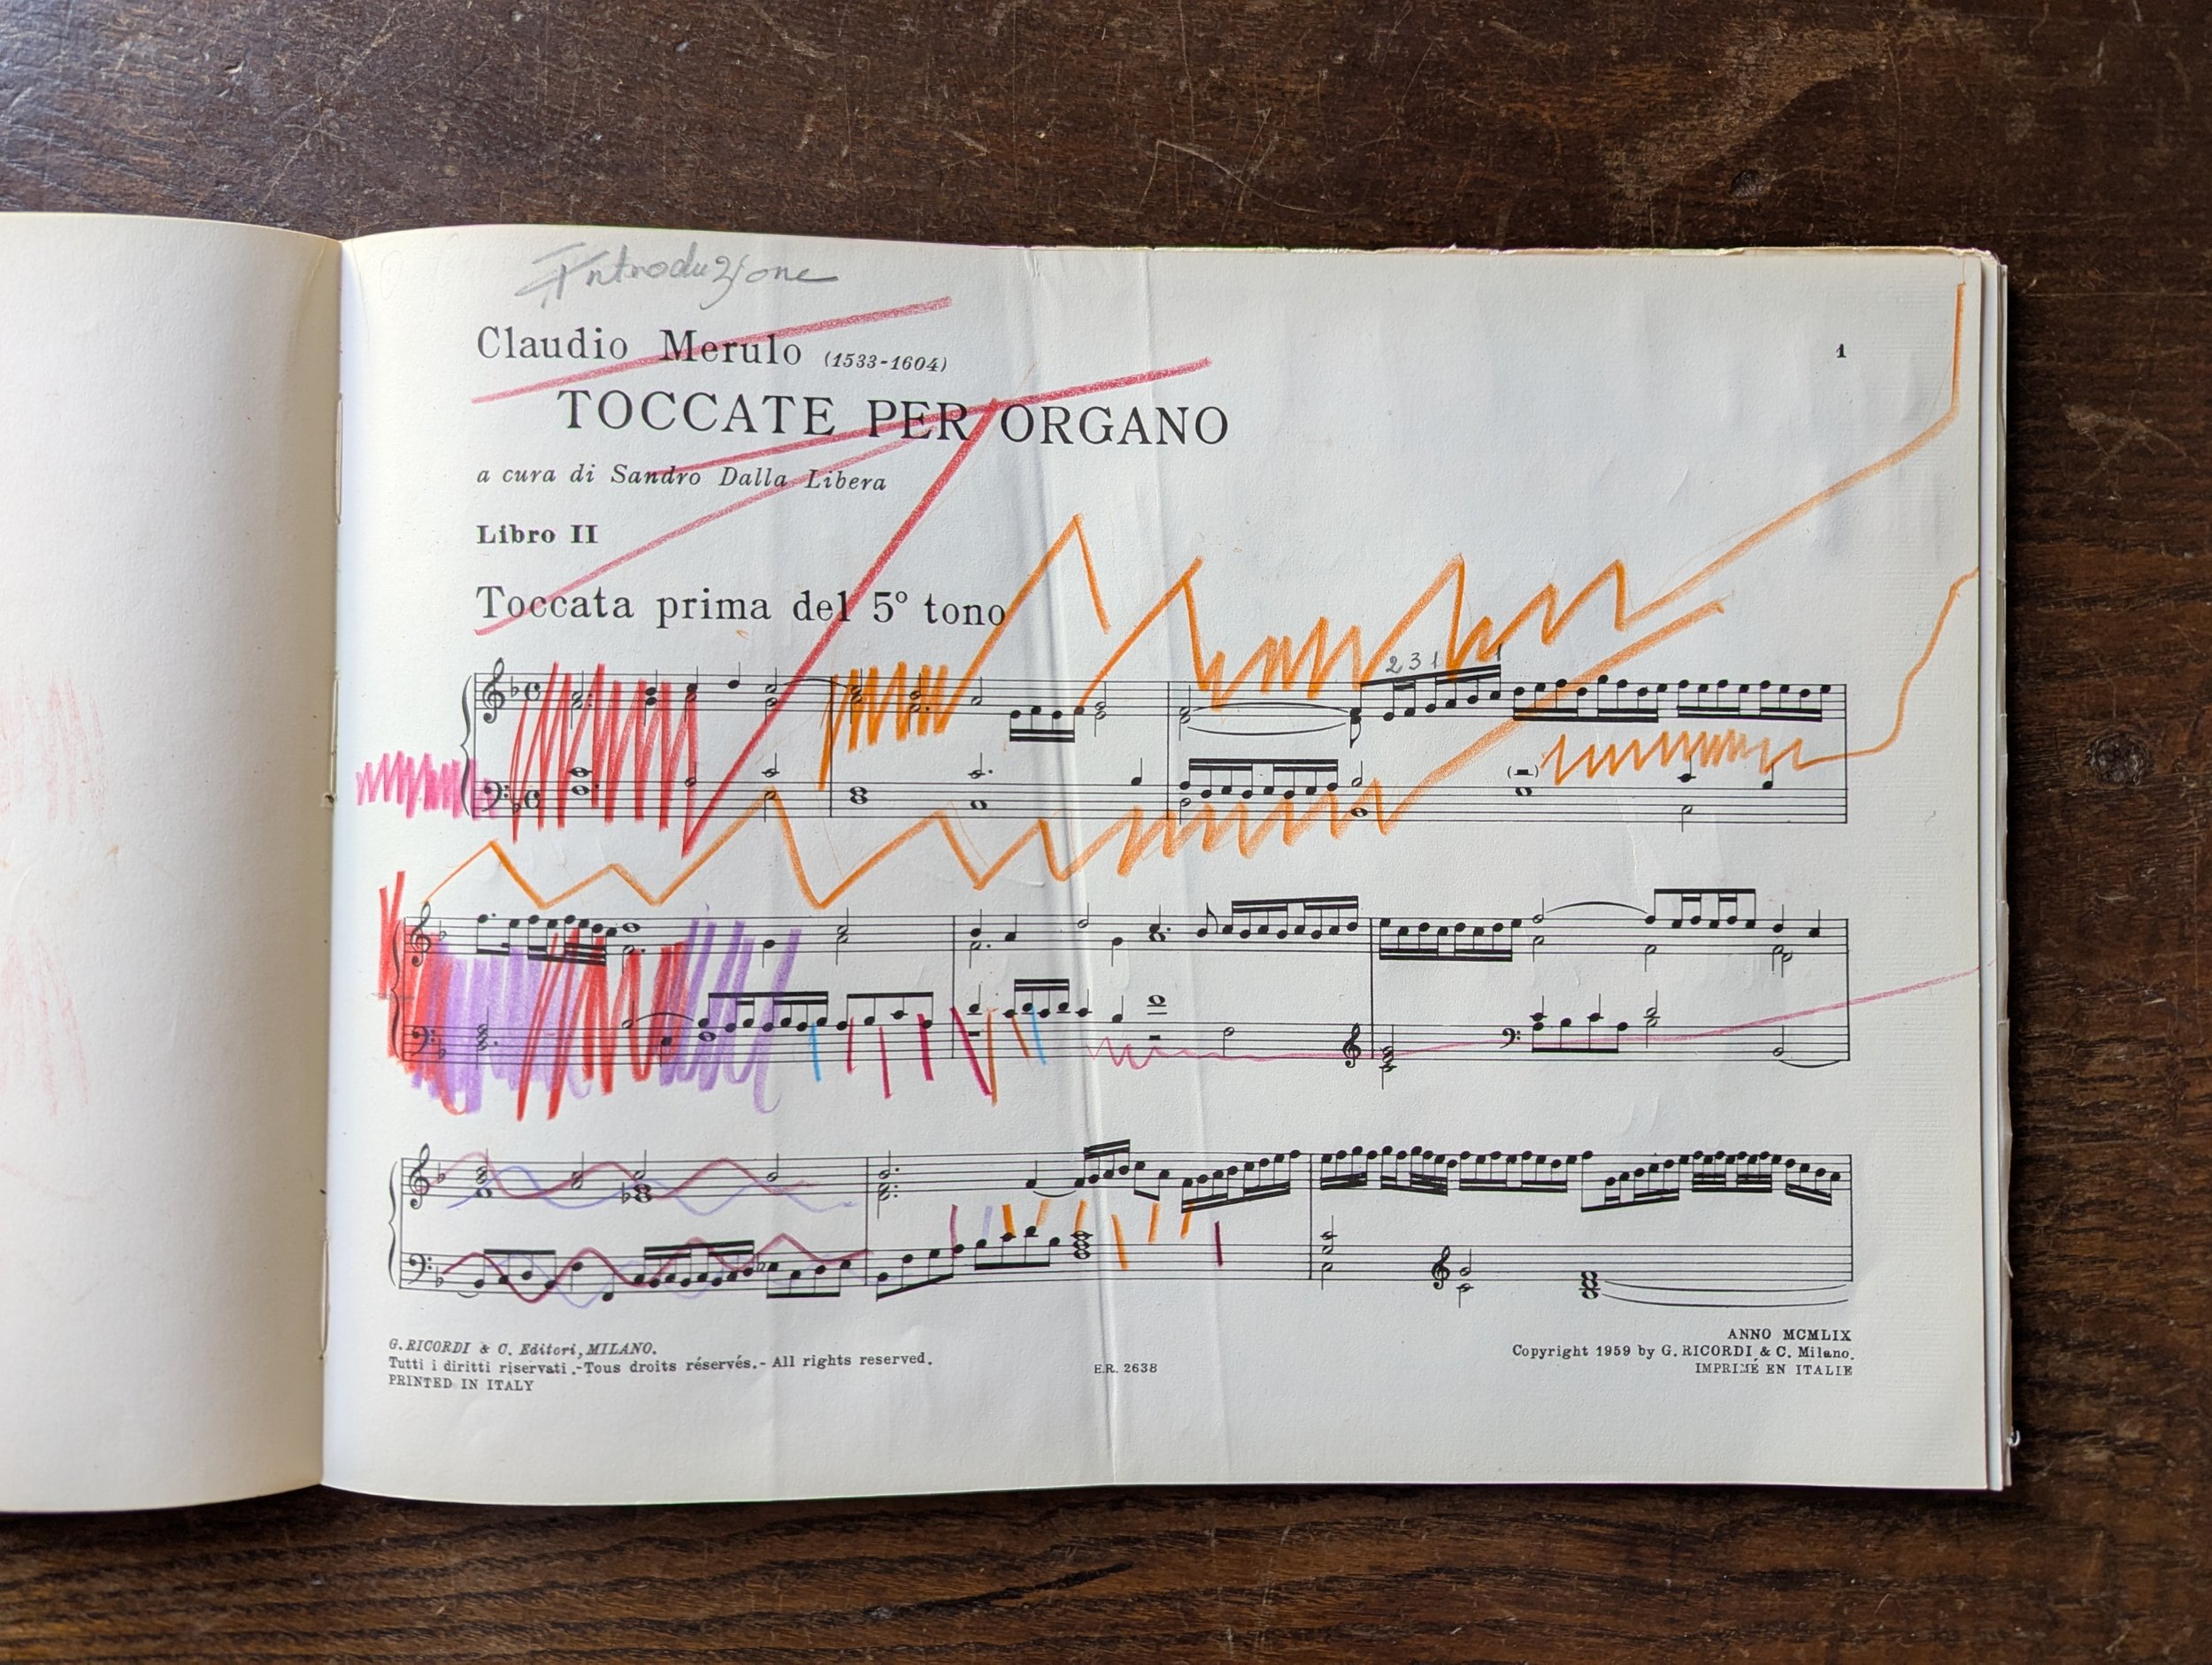 Introduzione
Claudio Merulo (1533-1604)
1
TOCCATE PER ORGANO
a cura di Sandro Dalla Libera
Libro II
Toccata prima del 5º tono
2 3 1 1
G. RICORDI & C. Editori, MILANO.
Tutti i diritti riservati.-Tous droits réservés.- All rights reserved.
PRINTED IN ITALY
E.R. 2638
ANNO MCMLIX
Copyright 1959 by G. RICORDI & C. Milano.
IMPRIMÉ EN ITALIE